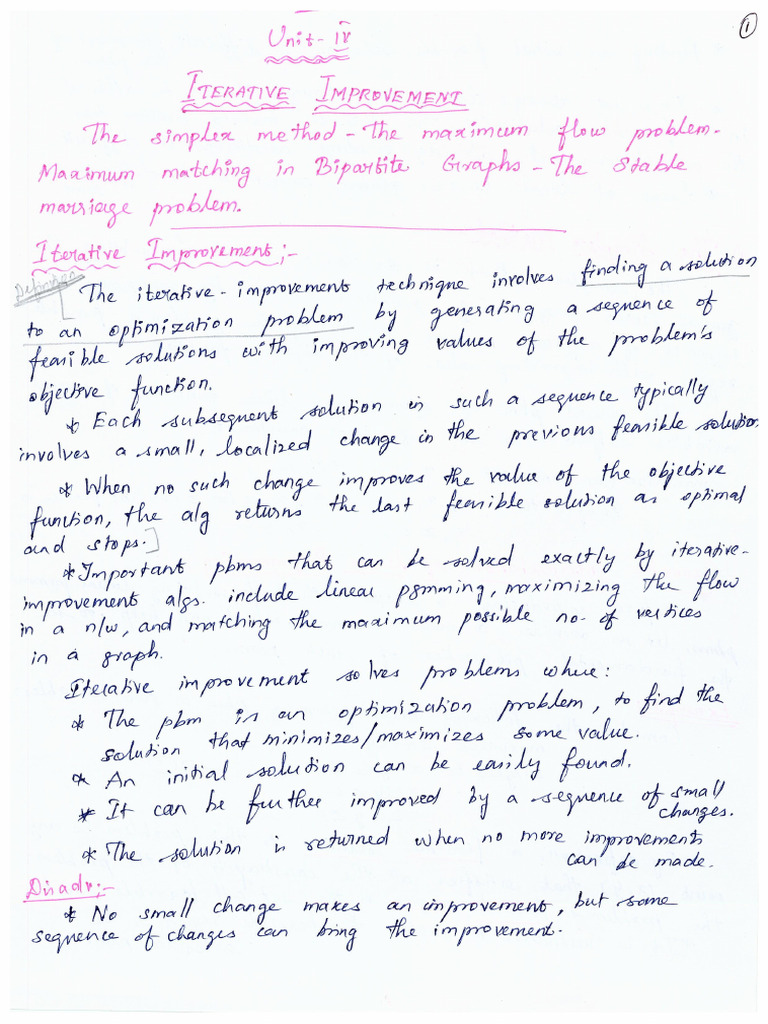 1
Unit-IV
ITERATIVE IMPROVEMENT
The simplex method - The maximum flow problem -
Maximum matching in Bipartite Graphs - The Stable
marriage problem.
Iterative Improvement:-
Definition
The iterative-improvement technique involves finding a solution
to an optimization problem by generating a sequence of
feasible solutions with improving values of the problem's
objective function.
* Each subsequent solution in such a sequence typically
involves a small, localized change in the previous feasible solution.
* When no such change improves the value of the objective
function, the alg returns the last feasible solution as optimal
and stops.]
* Important pbms that can be solved exactly by iterative-
improvement algs. include linear pgmming, maximizing the flow
in a n/w, and matching the maximum possible no. of vertices
in a graph.
Iterative improvement solves problems where:
* The pbm is an optimization problem, to find the
solution that minimizes/maximizes some value.
* An initial solution can be easily found.
* It can be further improved by a sequence of small
changes.
* The solution is returned when no more improvements
can be made.
Disadv:-
* No small change makes an improvement, but some
sequence of changes can bring the improvement.